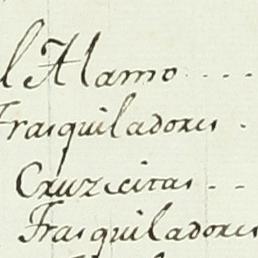 l Alamo ....
Frasquiladores .
Cruzecitas . .
Frasquiladores